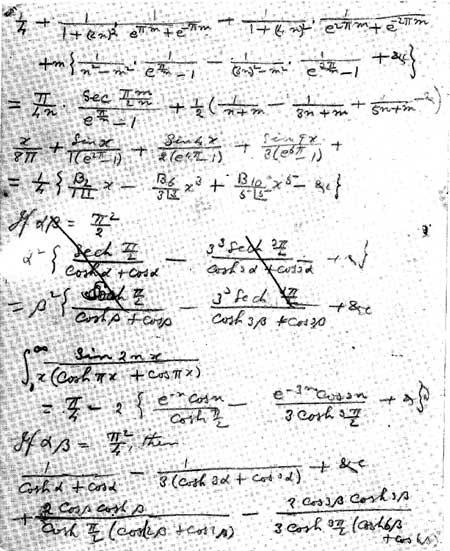 1/4 + 1/(1+(2n)²) · 1/(e^{πm}+e^{-πm}) + 1/(1+(4n)²) · 1/(e^{2πm}+e^{-2πm})
+ m { 1/(n²-m²) · 1/(e^{}-1) - 1/((3n)²-m²) · 1/(e^{}-1) + &c }
= π/4n · Sec πm/2n / (e^{}-1) + 1/2 ( 1/(n+m) - 1/(3n+m) + 1/(5n+m) - &c )
x/8π + Sin x/1(e^{2π}-1) + Sin 4x/2(e^{4π}-1) + Sin 9x/3(e^{6π}-1) +
= 1/4 { B₂/1 x - B₆/3 x³ + B₁₀/5 x⁵ - &c }
If αβ = π²/2
α² { Sech π/2 / (Cosh α + Cos α) - 3² Sech 3π/2 / (Cosh 3α + Cos 3α) + & }
= β² { Sech π/2 / (Cosh β + Cos β) - 3² Sech 3π/2 / (Cosh 3β + Cos 3β) + &c
∫₀^∞ Sin 2nx / x(Cosh πx + Cos πx)
= π/4 - 2 { e^{-n} Cos n / Cosh π/2 - e^{-3n} Cos 3n / 3 Cosh 3π/2 + & }
If αβ = π²/4, then
1/(Cosh α + Cos α) - 1/3(Cosh 3α + Cos 3α) + &c
+ 2 Cos β Cosh β / Cosh π/2 (Cosh 2β + Cos 2β) - 2 Cos 3β Cosh 3β / 3 Cosh 3π/2 (Cosh 6β
+ Cos 6β)